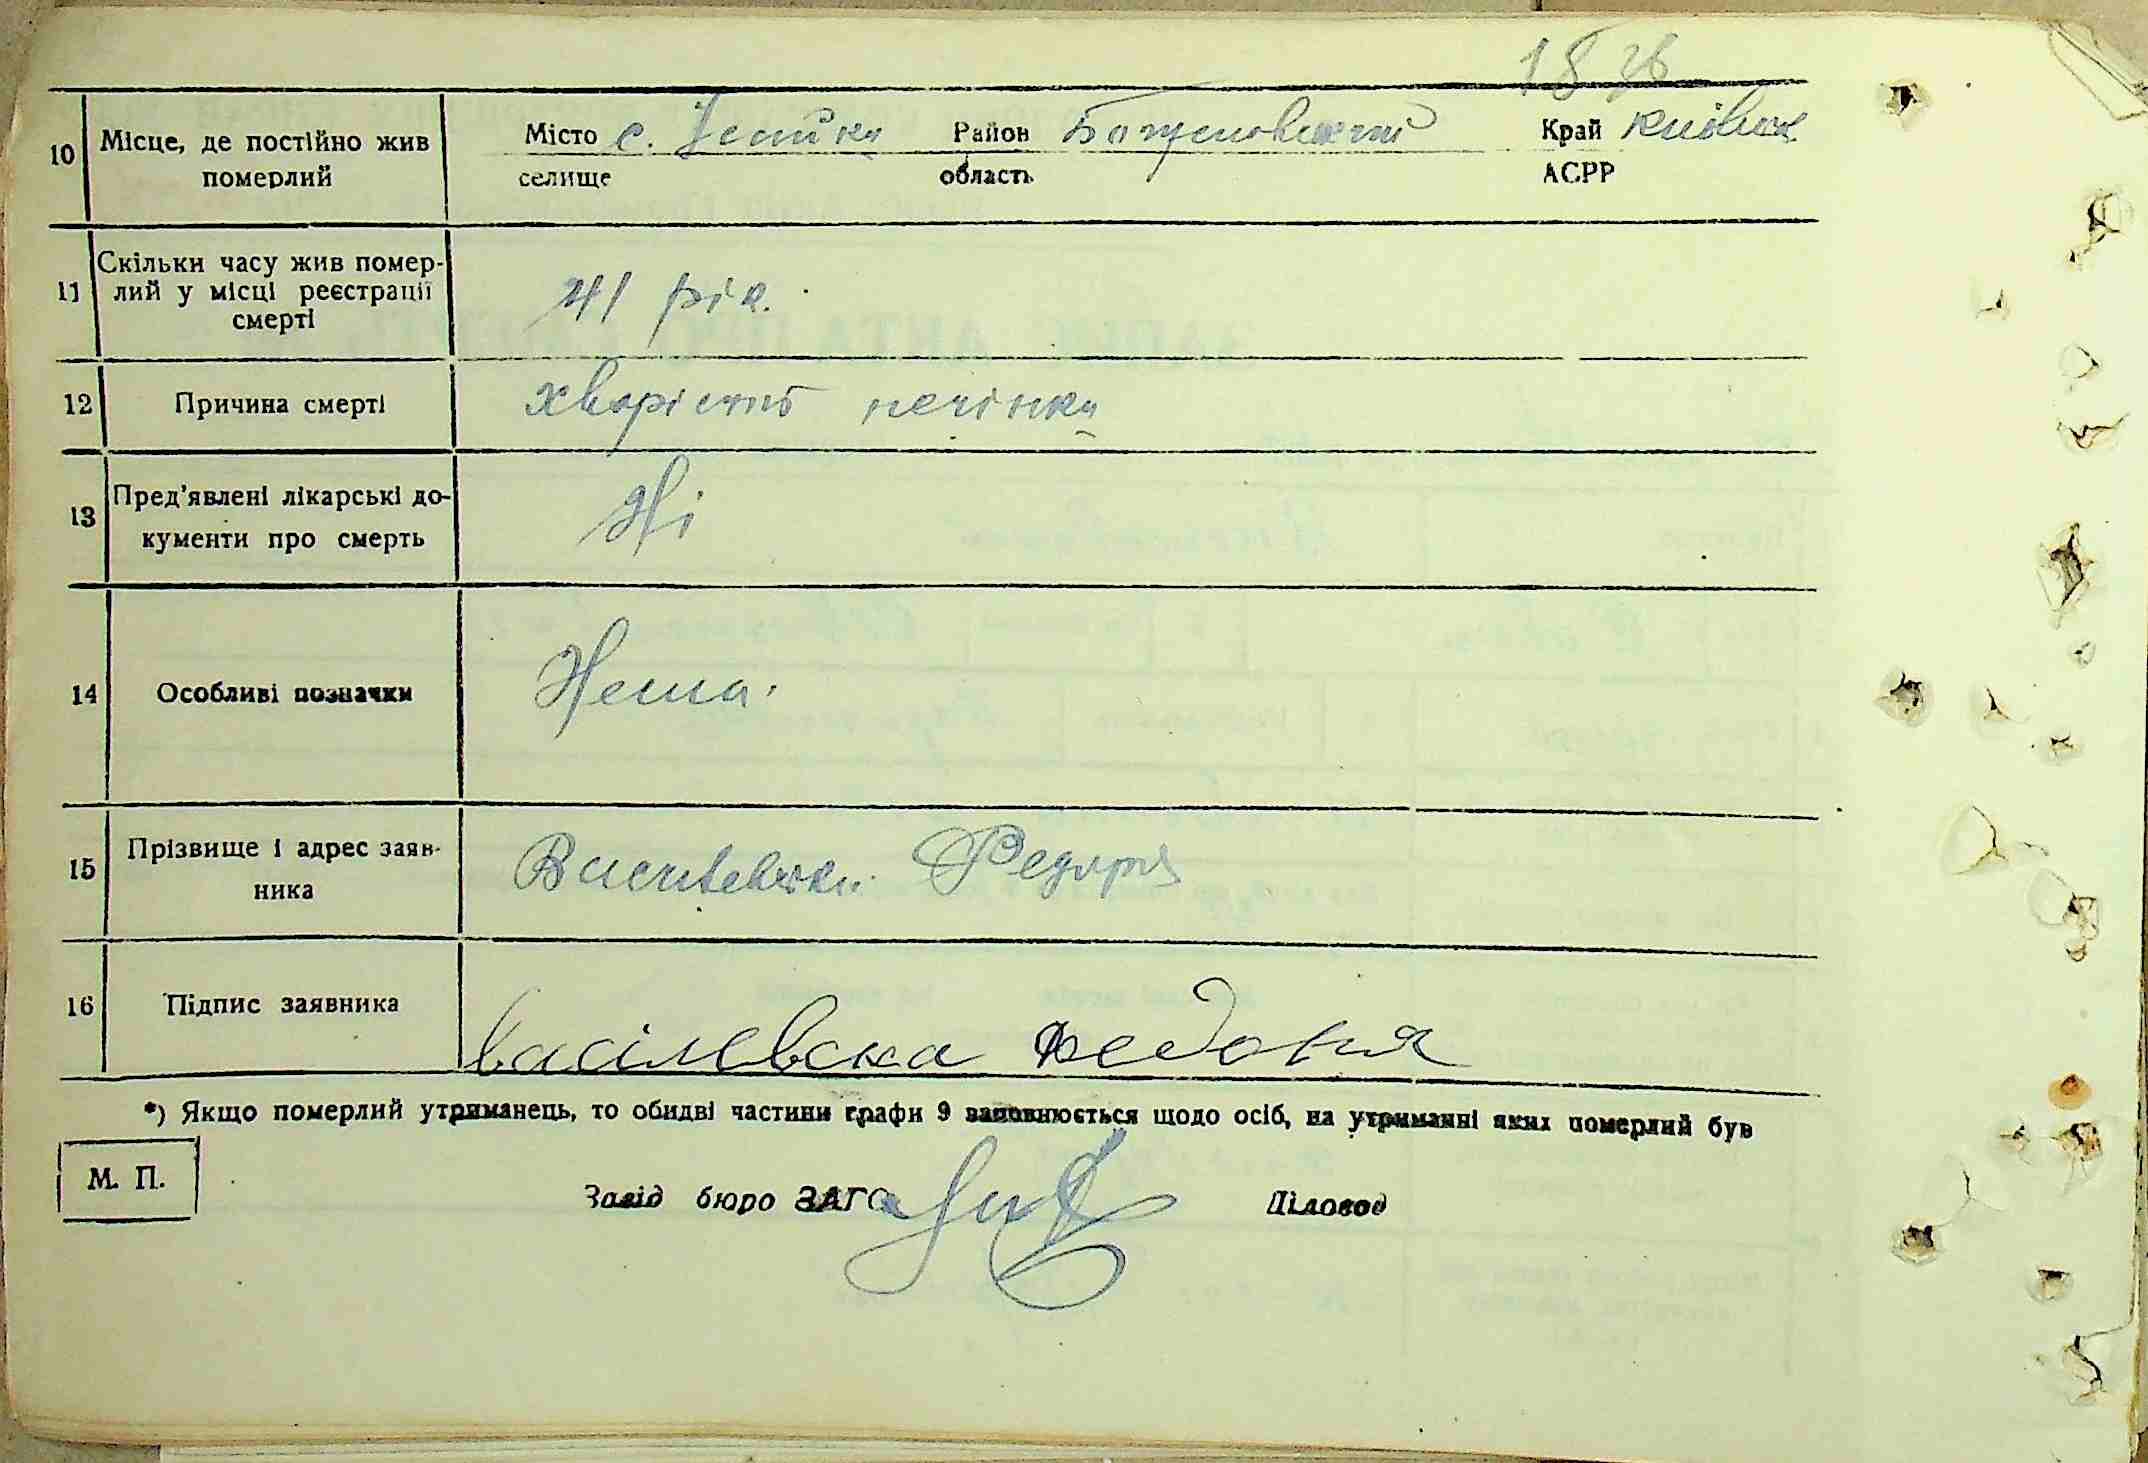 18 зв
10 Місце, де постійно жив померлий
Місто с. Район Край
селище область АСРР
11 Скільки часу жив помер-
лий у місці реєстрації
смерті
41 рік.
12 Причина смерті хворість печінки
13 Пред'явлені лікарські до-
кументи про смерть
Ні
14 Особливі позначки Нема.
15 Прізвище і адрес заяв-
ника
16 Підпис заявника васілевска
*) Якщо померлий утриманець, то обидві частини графи 9 заповнюється щодо осіб, на утриманні яких померлий був
М. П.
Завід бюро ЗАГС Діловод